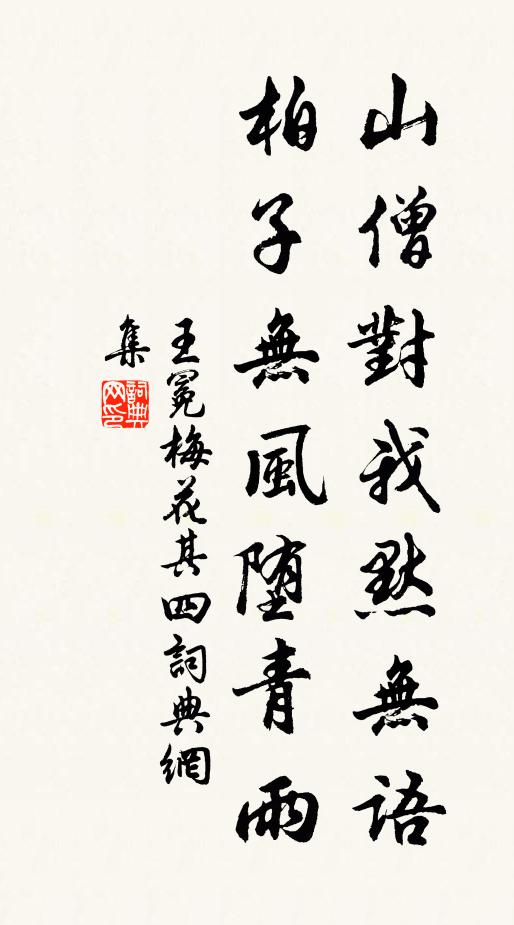 山僧對我默無語
柏子無風墮青雨
王冕梅花其四詞典網
集
詞典網印